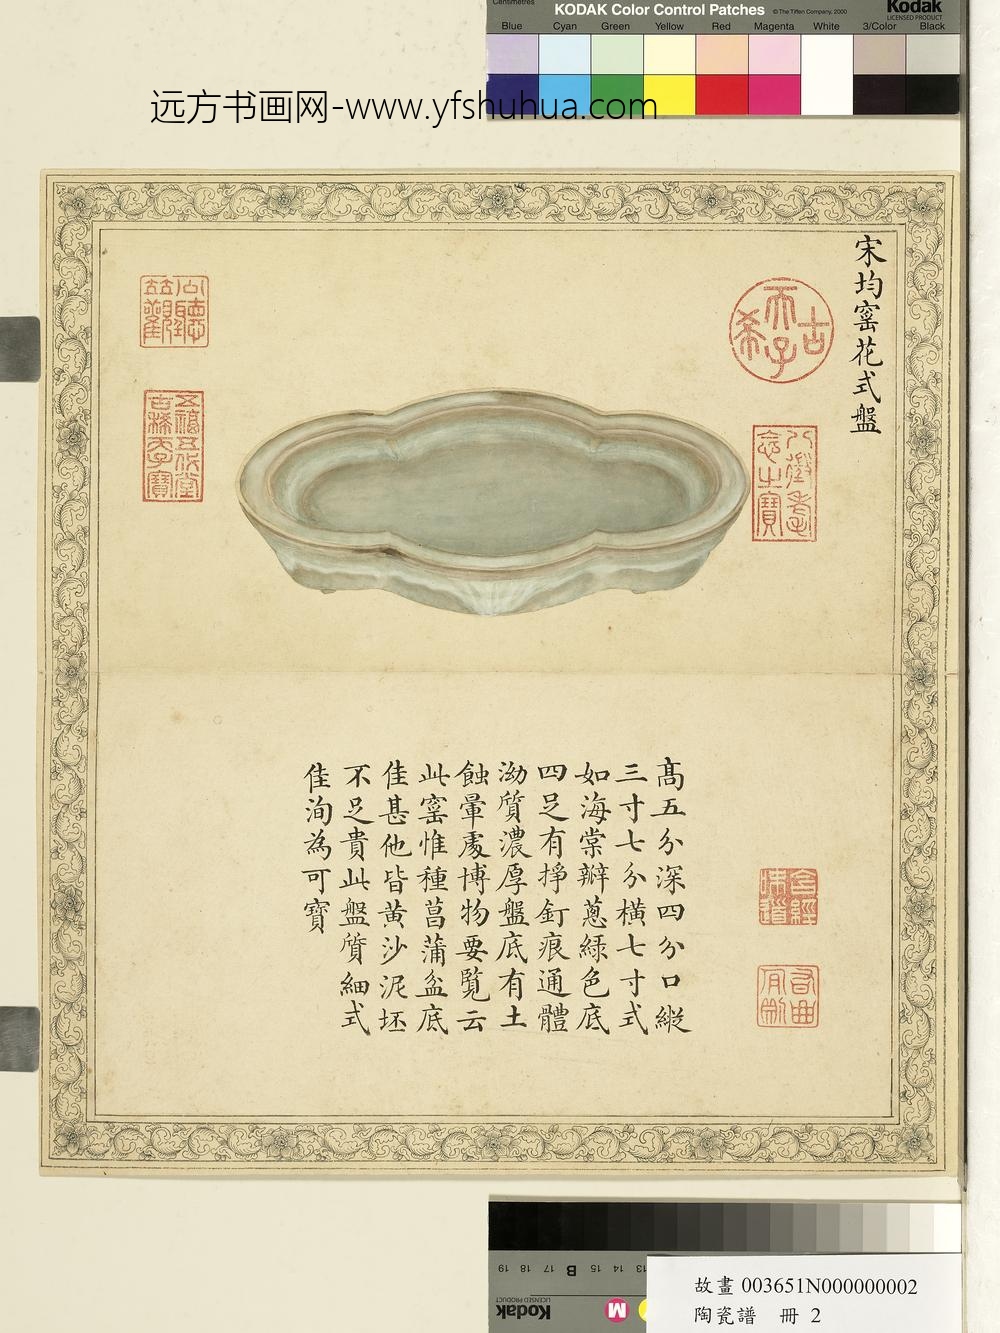 Centimetres
KODAK Color Control Patches
©The Tiffen Company, 2000
Kodak
LICENSED PRODUCT
Blue Cyan Green Yellow Red Magenta White 3/Color Black
远方书画网-www.yfshuhua.com
宋均窑花式盤
古
希
天
子
八徵耄
念之寶
公聽
並觀
五福五代堂
古稀天子寶
高五分深四分口縱
三寸七分橫七寸式
如海棠瓣蔥綠色底
四足有掙釘痕通體
泑質濃厚盤底有土
蝕暈處博物要覽云
此窑惟種菖蒲盆底
佳甚他皆黃沙泥坯
不足貴此盤質細式
佳洵為可寶
含經
味道
19 18 17 B 15 14 13
Kodak
LICENSED PRODUCT
M
故畫 003651N000000002
陶瓷譜 冊 2